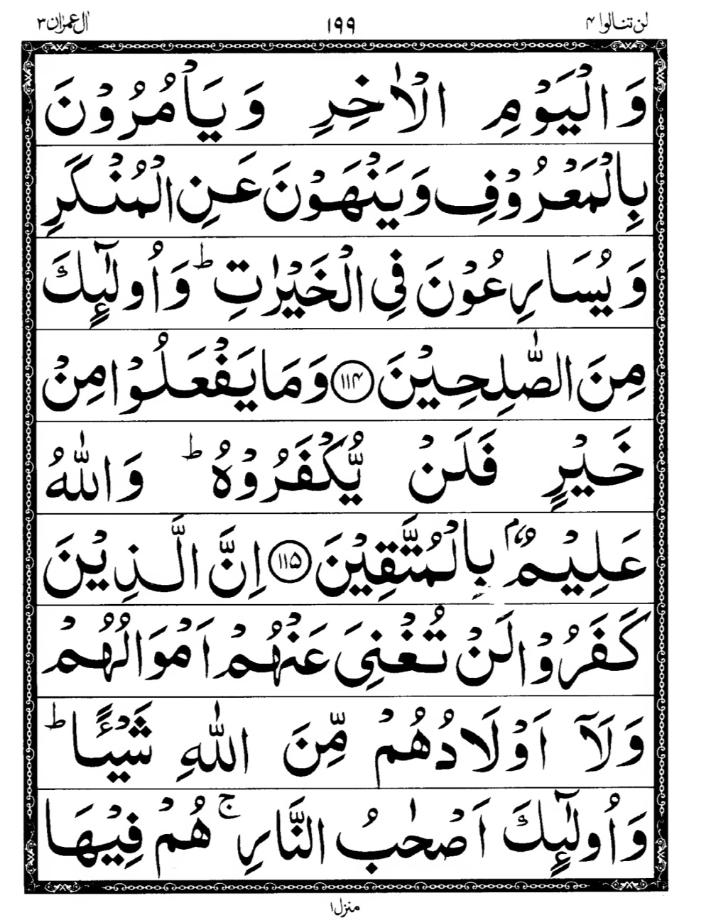 لن تنالوا ۴ ۱۹۹ اٰل عمران ۳
وَالْيَوْمِ الْاٰخِرِ وَيَاْمُرُوْنَ
بِالْمَعْرُوْفِ وَيَنْهَوْنَ عَنِ الْمُنْكَرِ
وَيُسَارِعُوْنَ فِي الْخَيْرٰتِ ؕ وَاُولٰٓئِكَ
مِنَ الصّٰلِحِيْنَ ﴿۱۱۴﴾ وَمَا يَفْعَلُوْا مِنْ
خَيْرٍ فَلَنْ يُّكْفَرُوْهُ ؕ وَاللّٰهُ
عَلِيْمٌۢ بِالْمُتَّقِيْنَ ﴿۱۱۵﴾ اِنَّ الَّذِيْنَ
كَفَرُوْا لَنْ تُغْنِيَ عَنْهُمْ اَمْوَالُهُمْ
وَلَآ اَوْلَادُهُمْ مِّنَ اللّٰهِ شَيْـًٔا ؕ
وَاُولٰٓئِكَ اَصْحٰبُ النَّارِ ۚ هُمْ فِيْهَا
منزل ۱